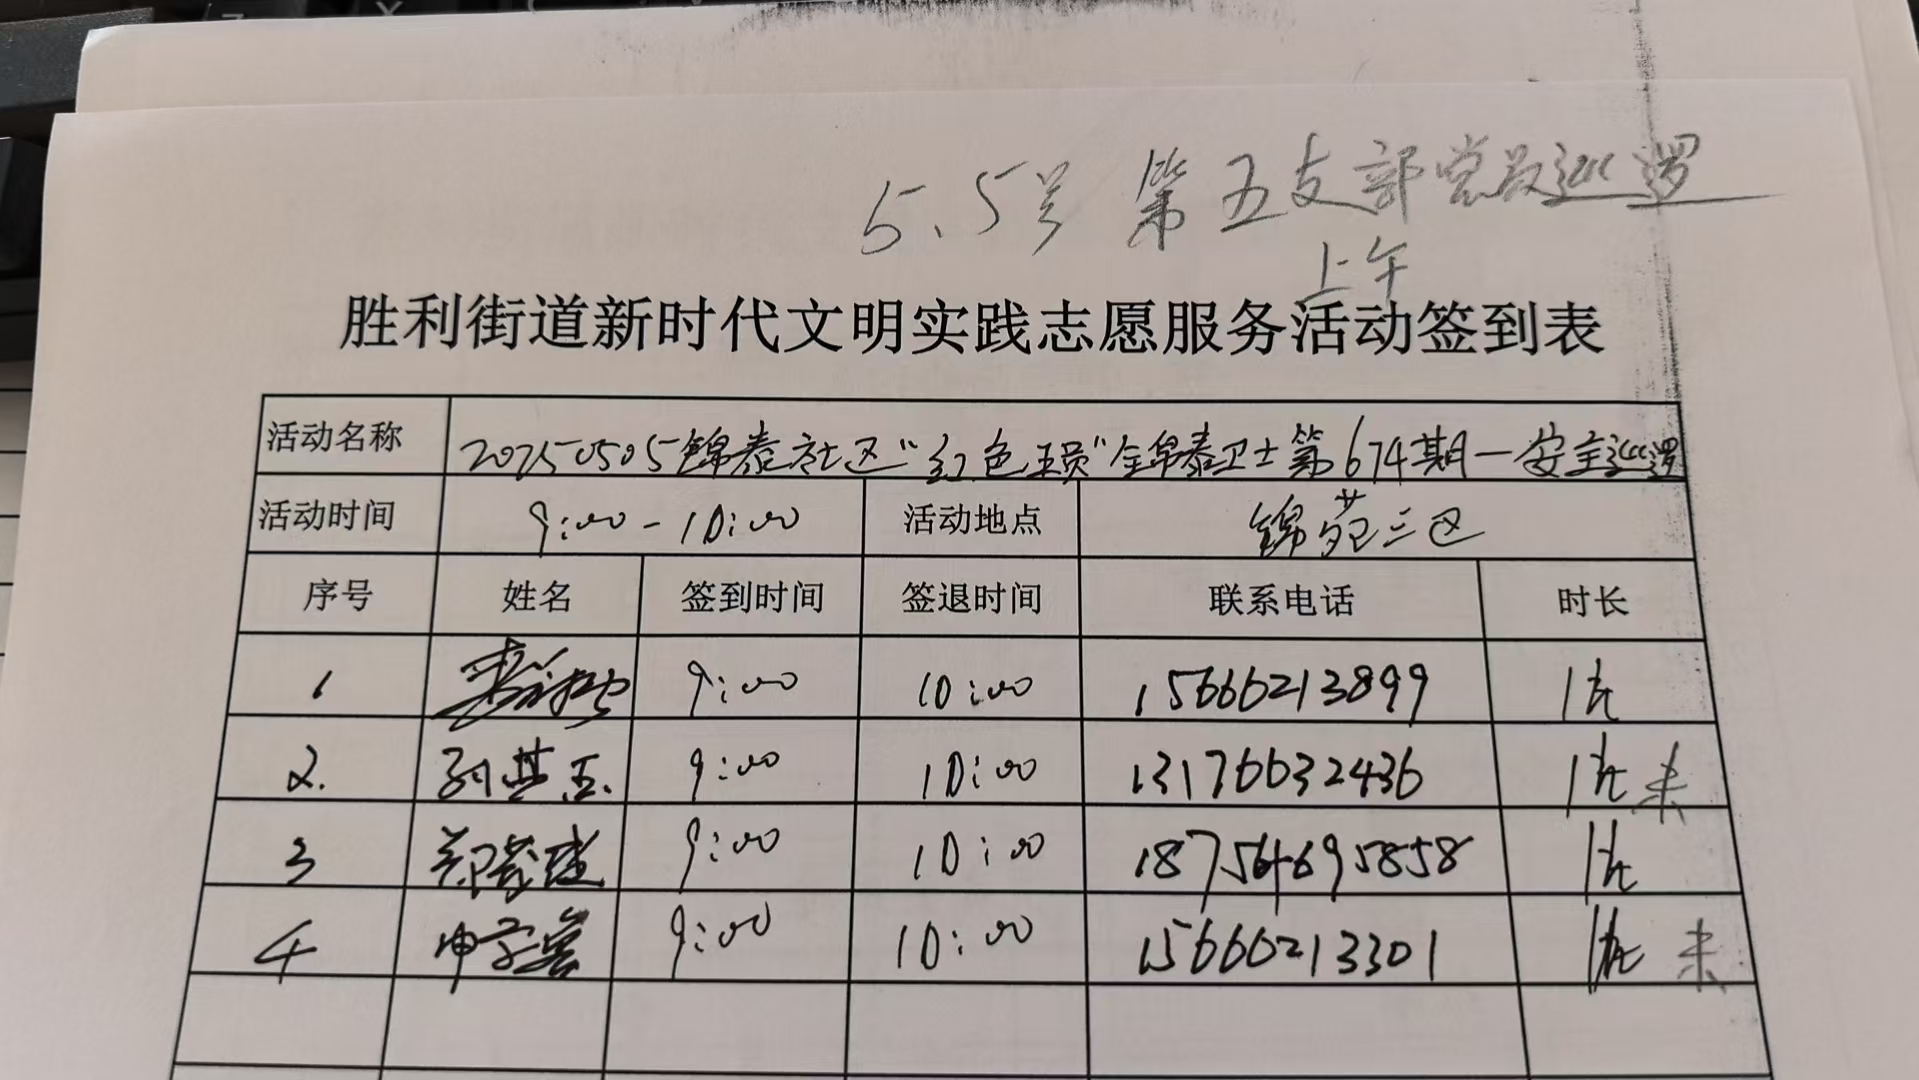 5.5号 第五支部党员巡逻
上午
胜利街道新时代文明实践志愿服务活动签到表
活动名称 20250505锦泰社区“红色现员”全锦泰卫士第674期—安全巡逻
活动时间 9:00-10:00 活动地点 锦苑三区
序号 姓名 签到时间 签退时间 联系电话 时长
1 9:00 10:00 15666213899 1h
2. 孙其玉 9:00 10:00 13176632436 1h 未
3 9:00 10:00 187564695858 1h
4 9:00 10:00 15666213301 1h 未